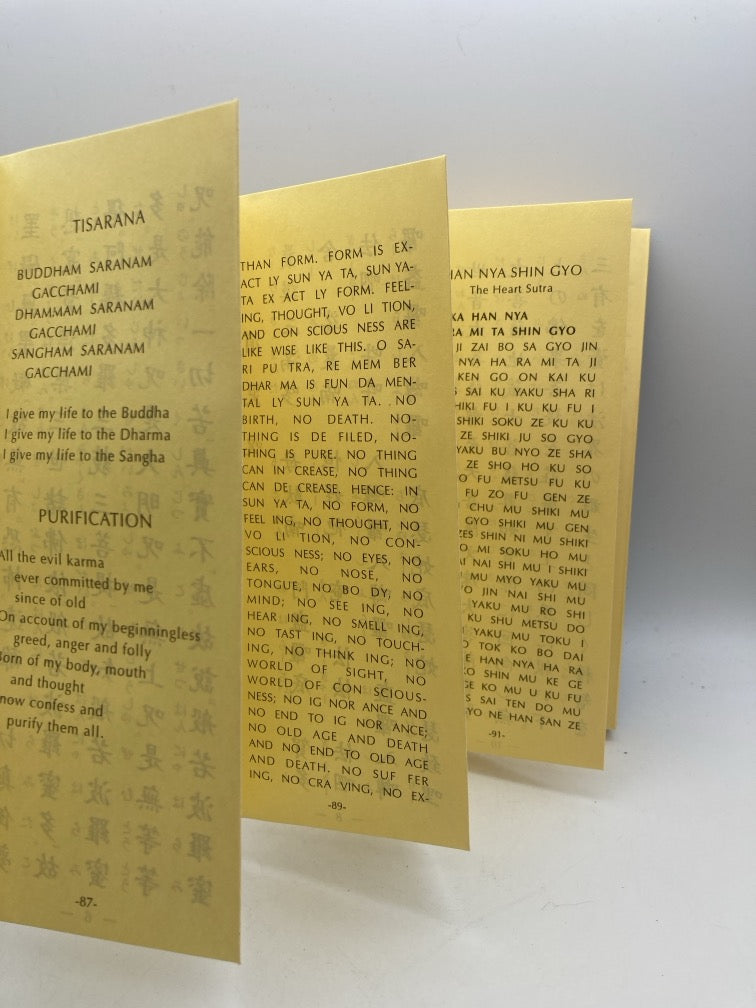 TISARANA
BUDDHAM SARANAM
GACCHAMI
DHAMMAM SARANAM
GACCHAMI
SANGHAM SARANAM
GACCHAMI
I give my life to the Buddha
I give my life to the Dharma
I give my life to the Sangha
PURIFICATION
All the evil karma
ever committed by me
since of old
On account of my beginningless
greed, anger and folly
Born of my body, mouth
and thought
now confess and
purify them all.
-87-
THAN FORM. FORM IS EX-
ACT LY SUN YA TA, SUN YA-
TA EX ACT LY FORM. FEEL-
ING, THOUGHT, VO LI TION,
AND CON SCIOUS NESS ARE
LIKE WISE LIKE THIS. O SA-
RI PU TRA, RE MEM BER
DHAR MA IS FUN DA MEN-
TAL LY SUN YA TA. NO
BIRTH, NO DEATH. NO-
THING IS DE FILED, NO-
THING IS PURE. NO THING
CAN IN CREASE, NO THING
CAN DE CREASE. HENCE: IN
SUN YA TA, NO FORM, NO
FEEL ING, NO THOUGHT, NO
VO LI TION, NO CON-
SCIOUS NESS; NO EYES, NO
EARS, NO NOSE, NO
TONGUE, NO BO DY, NO
MIND; NO SEE ING, NO
HEAR ING, NO SMELL ING,
NO TAST ING, NO TOUCH-
ING, NO THINK ING; NO
WORLD OF SIGHT, NO
WORLD OF CON SCIOUS-
NESS; NO IG NOR ANCE AND
NO END TO IG NOR ANCE;
NO OLD AGE AND DEATH
AND NO END TO OLD AGE
AND DEATH. NO SUF FER
ING, NO CRA VING, NO EX-
-89-
HAN NYA SHIN GYO
The Heart Sutra
KA HAN NYA
RA MI TA SHIN GYO
JI ZAI BO SA GYO JIN
NYA HA RA MI TA JI
KEN GO ON KAI KU
SAI KU YAKU SHA RI
SHIKI FU I KU KU FU I
SHIKI SOKU ZE KU KU
ZE SHIKI JU SO GYO
YAKU BU NYO ZE SHA
ZE SHO HO KU SO
FU METSU FU KU
FU ZO FU GEN ZE
CHU MU SHIKI MU
GYO SHIKI MU GEN
ZES SHIN NI MU SHIKI
MI SOKU HO MU
NAI SHI MU I SHIKI
MU MYO YAKU MU
JIN NAI SHI MU
YAKU MU RO SHI
KU SHU METSU DO
YAKU MU TOKU I
TOK KO BO DAI
HAN NYA HA RA
SHIN MU KE GE
GE KO MU U KU FU
SAI TEN DO MU
GYO NE HAN SAN ZE
-91-